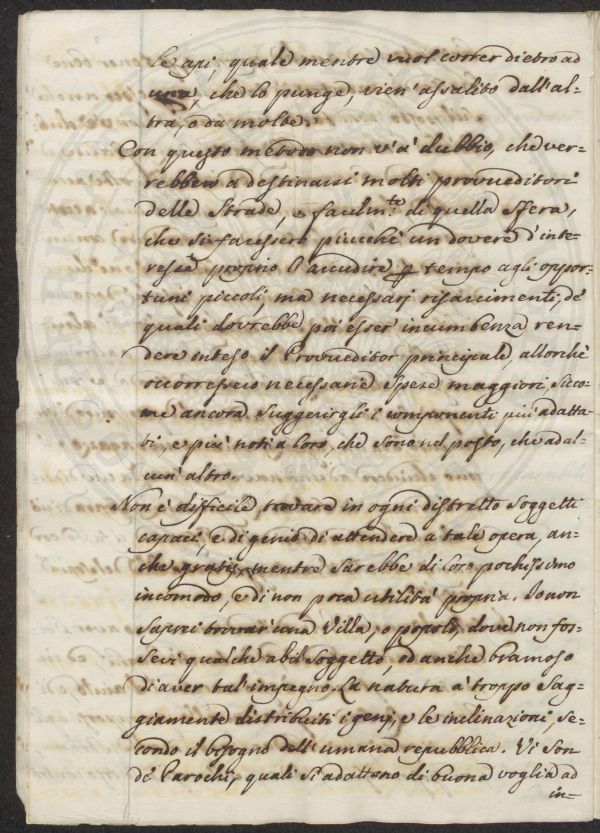 le api, quale mentre vuol correr dietro ad
una, che lo punge, vien' assalito dall'al-
tra, o da molte.
Con questo metodo non v'à dubbio, che ver-
rebbero a destinarsi molti provveditori
delle Strade, e facilm.te di quella Sfera,
che si facessero piucchè un dovere d'inte-
resse proprio l'accudire tempo agli oppor-
tuni piccoli, ma necessarj risarcimenti, de'
quali dovrebbe poi esser incumbenza ren-
dere inteso il Provveditor principale, allorchè
occorressero necessarie Spese maggiori, sicco-
me ancora suggerirgli i componenti più adatta-
bi, e più noti a loro, che sono nel posto, che ad al-
cun' altro.
Non è difficile trovare in ogni distretto Soggetti
capaci, e di genio di attendere a tale opera, an-
che gratis, mentre sarebbe di loro pochissimo
incomodo, e di non poca utilità propria. Io non
saprei trovar una Villa, o popolo, dove non fos-
sevi qualche abil Soggetto, ed anche bramoso
di aver tal impegno. La natura à troppo Sag-
giamente distribuiti i genj, e le inclinazioni, se-
condo il bisogno dell'umana repubblica. Vi son
de' Parochi, quali si adattano di buona voglia ad
in-